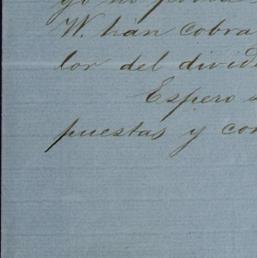 W. han cobra
lor del divid
Espero
puestas y con